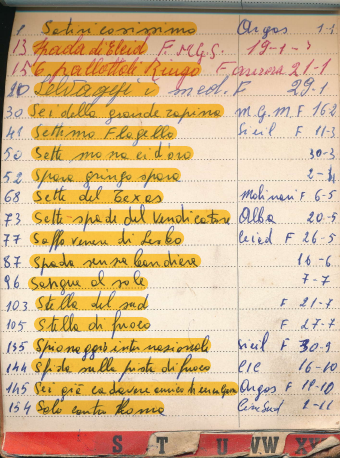 1 Sotsicarissimo Argos 1-1
13 Spada di El Cid P.M.G.S. 19-1
15 6 pallottole Ringo 21-1
20 Selvaggi i F 29-1
30 Sei della grande rapina M.G.M. F 16-2
41 Settimo Flagello Sicil F 11-3
50 Sette monaci d'oro 30-3
52 Spara gringo spara
68 Sette del Texas Molinari F 6-5
73 Sette spade del vendicatore Alba 20-5
77 Saffo venere di Lesbo F 26-5
87 Spada senza bandiera 16-6
96 Sangue al sole 7-7
103 Stella del sud F 21-7
105 Stella di fuoco F 27-7
135 Spionaggio internazionale Sicil F 30-9
144 Sfida sulla pista di fuoco CIC 16-10
145 Sei già cadavere Argos F 19-10
154 Solo contro Roma CineSud 2-11
S T U VW